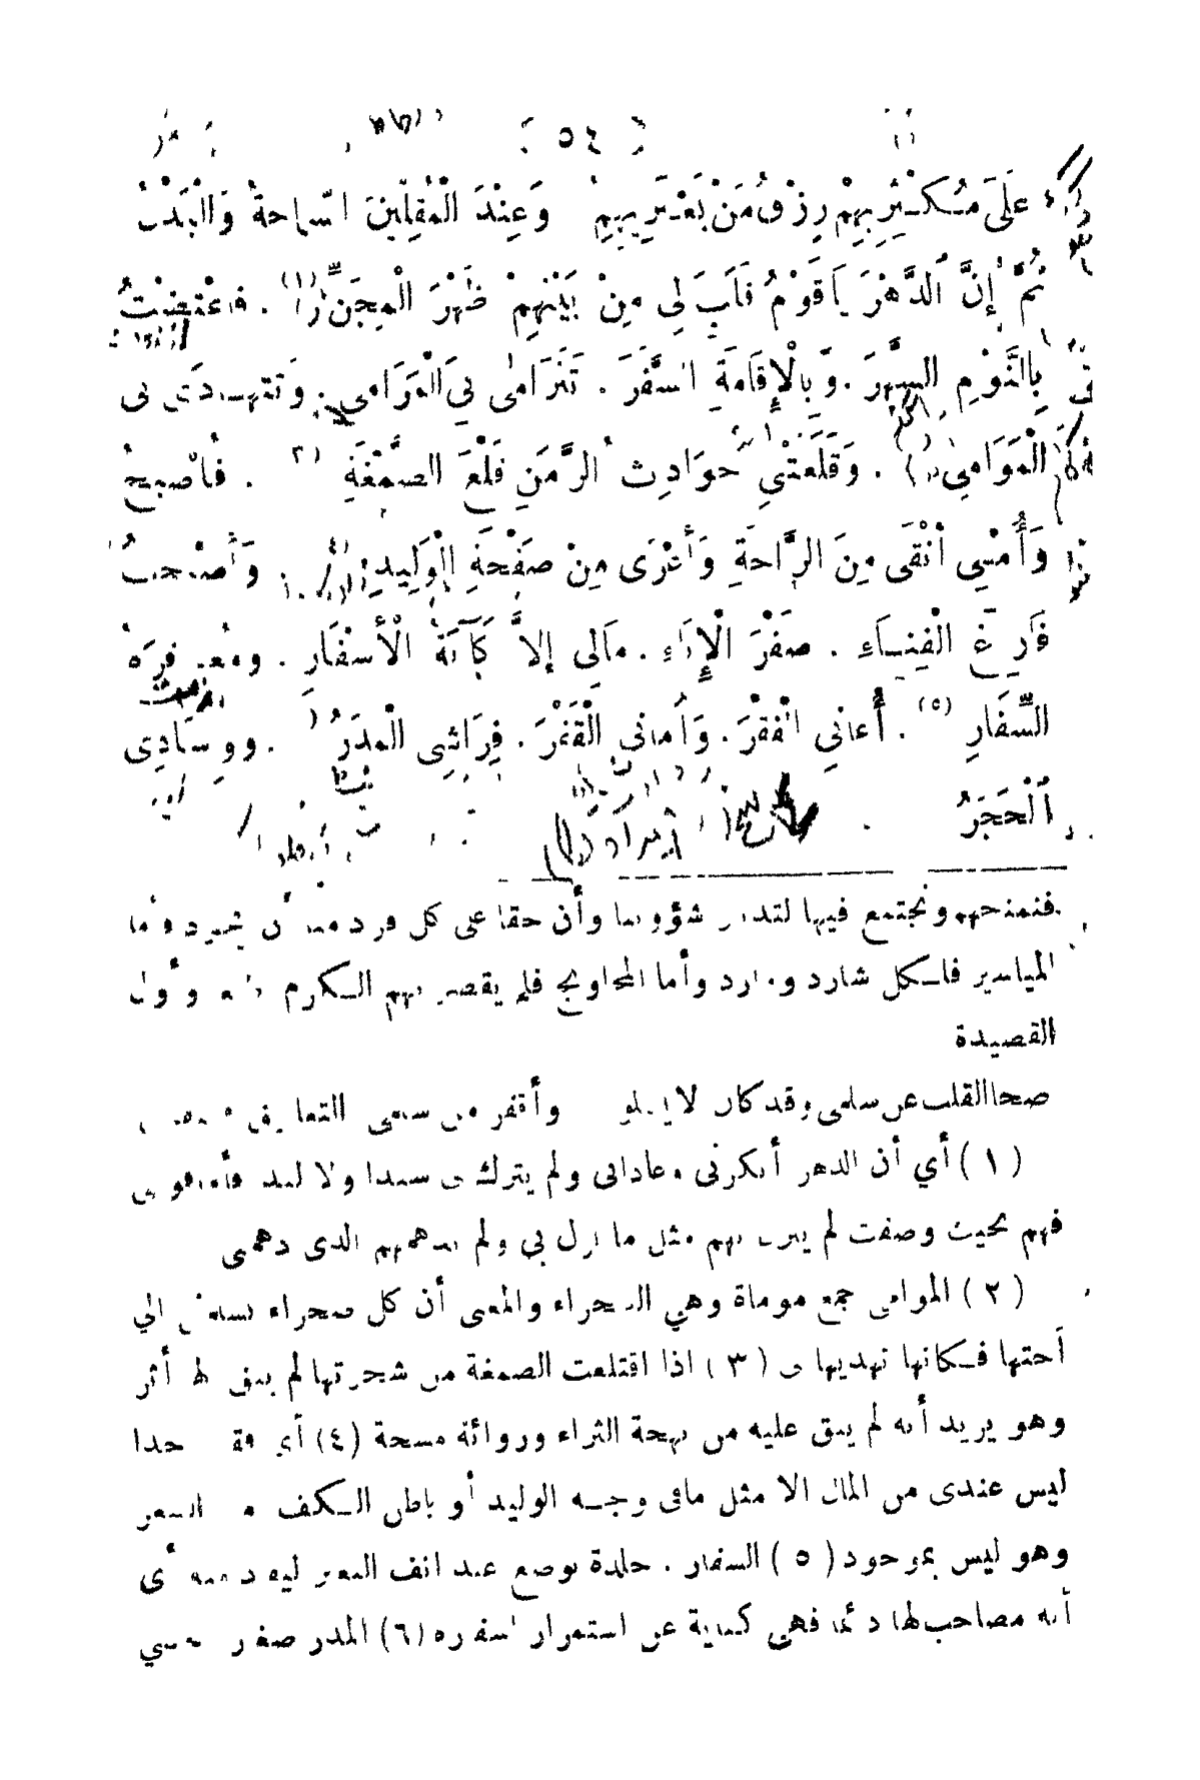 ( ٥٤ )
عَلَى مُكْثِرِيهِمْ رِزْقُ مَنْ يَعْتَرِيهِمُ وَعِنْدَ الْمُقِلِّينَ السَّماحةُ وَالْبَذْلُ
ثُمَّ إِنَّ الدَّهْرَ يَاقَوْمُ قَلَبَ لِي مِنْ بَيْنِهِمْ ظَهْرَ الْمِجَنِّ (١) . فَاعْتَضْتُ
بِالنَّوْمِ السَّهَرَ . وَبِالْإِقَامَةِ السَّفَرَ . تَتَرَامَى بِيَ الْمَرَامِي . وَتَتَهادَى بي
الْمَوَامِي . وَقَلَعَتْنِي حَوَادِثُ الزَّمَنِ قَلْعَ الصَّمْغَةِ . فَأُصْبِحُ
وَأُمْسِي أَنْقَى مِنَ الرَّاحَةِ وَأَعْرَى مِنْ صَفْحَةِ الْوَلِيدِ . وَأَصْبَحْتُ
فَارِغَ الْفِنَاءِ . صَفْرَ الْإِنَاءِ . مَالِي إِلاَّ كَآبَةُ الْأَسْفَارِ . ومُعَاقرَةُ
السِّفَارِ (٥) . أُعَانِي الْفَقْرَ . وَأُمَانِي الْقَفْرَ . فِرَاشِي الْمَدَرُ . وَوِسَادِي
اَلْحَجَرُ
فنمنحهم ونجتمع فيها لتدبر شؤوننا وأن حقا على كل فرد منا أن
المياسير فلكل شارد ووارد وأما المحاويج فلم يقصر بهم الكرم وأول
القصيدة
صحا القلب عن سلمى وقد كان لا يسلو وأقفر من سلمى التعانيق
( ١ ) أي أن الدهر أنكرني وعاداني ولم يترك لي سبدا ولا لبدا
فهم بحيث وصفت لم ينزل بهم مثل ما نزل بي ولم يدهمهم الذي دهمني
( ٢ ) الموامي جمع موماة وهي الصحراء والمعنى أن كل صحراء تسلمني الي
أختها فكأنها تهديها لي ( ٣ ) اذا اقتلعت الصمغة من شجرتها لم يبق لها أثر
وهو يريد أنه لم يبق عليه من بهجة الثراء وروائه مسحة (٤) أي جدا
ليس عندي من المال الا مثل مافي وجه الوليد أو باطن الكف من الشعر
وهو ليس بموجود ( ٥ ) السفار . جلدة توضع عند انف البعير أي
أنه مصاحب لها دائما فهي كناية عن استمرار اسفاره (٦) المدر صغار الحصي